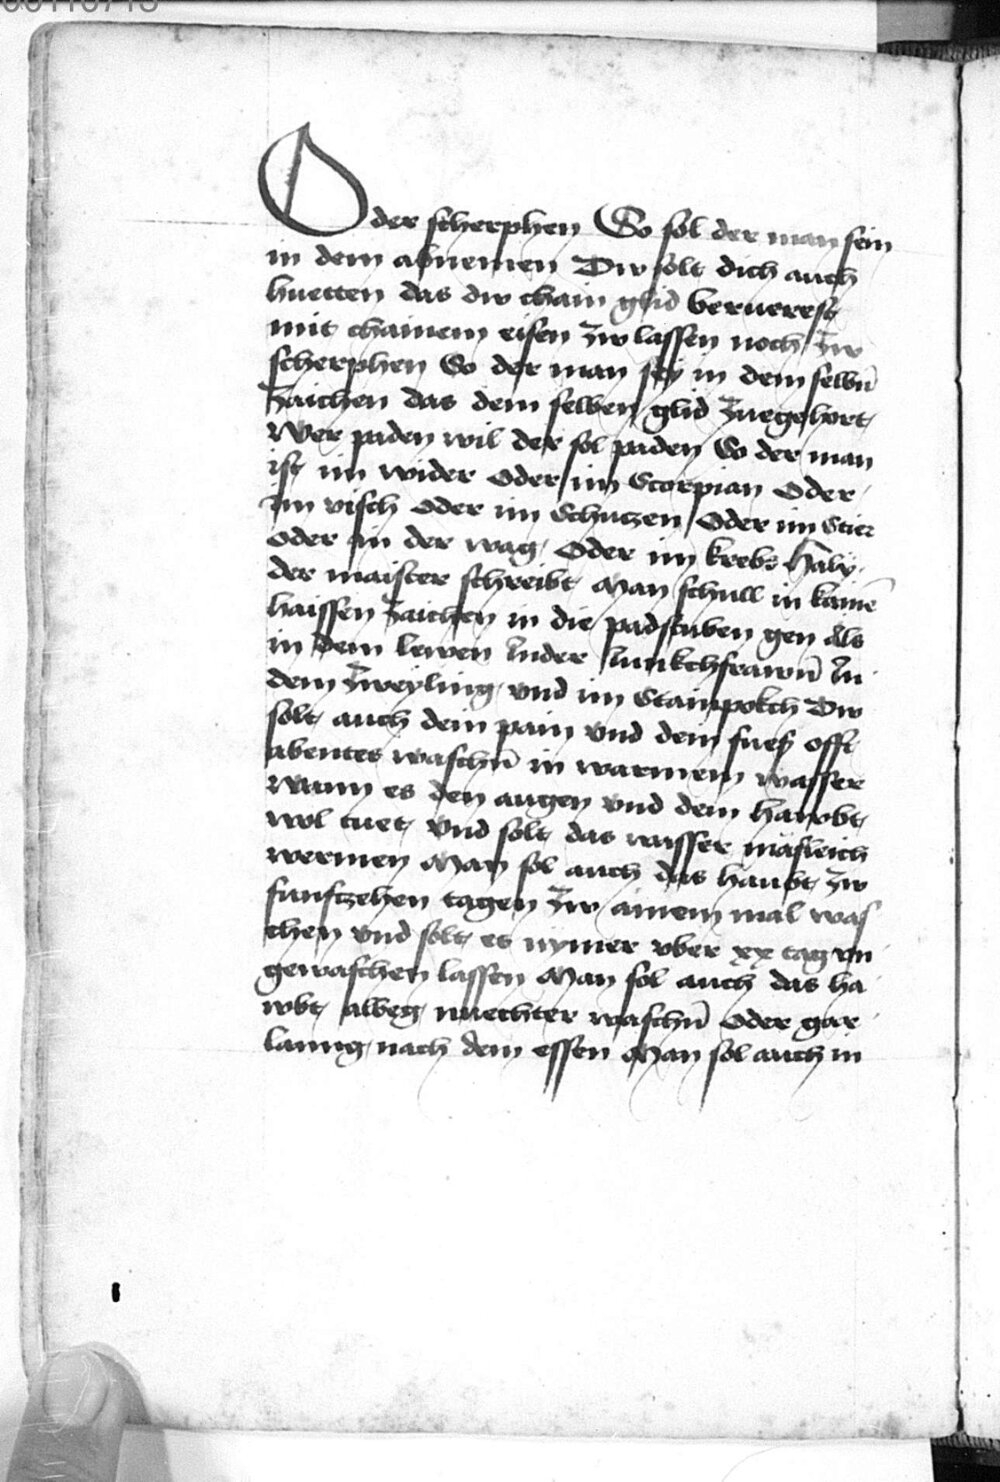 Oder scherphen So sol der man sein
in dem abnemen Dw solt dich auch
huetten das dw chain glid beruerest
mit chainem eisen zw lassen noch zw
scherphen So der man sey in dem selbn̄
zaichen das dem selben glid zuegehort
Wer paden wil der sol paden So der man
ist im wider oder im Scorpian oder
Im visch oder im Schutzen oder im Stier
oder in der wag oder im krebs Haly
der maister schreibt Man schull in kaine͂
haissen zaichen in die padstuben gen Als
in dem lewen Inder Junkchfrawn̄ In
dem zweyling vnd im Stainpokch Dw
solt auch dein pain vnd dein fues offt
abentes waschn̄ in warmem wasser
Wann es den augen vnd dem hawbt
wol tuet vnd solt das wasser maesleich
wermen Man sol auch das haubt zw
funfczehen tagen zw ainem mal was
chen vnd solt es nymer vber xx tag vn
gewaschen lassen Man sol auch das ha
wbt albeg nuechter waschn̄ oder gar
lanng nach dem essen Man sol auch in